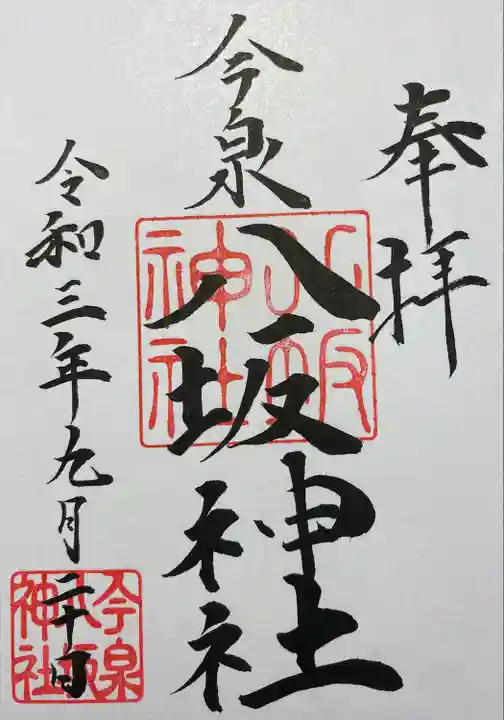 奉拝
今泉
八坂神社
令和三年九月二十日
八坂
神社
今泉
八坂
神社